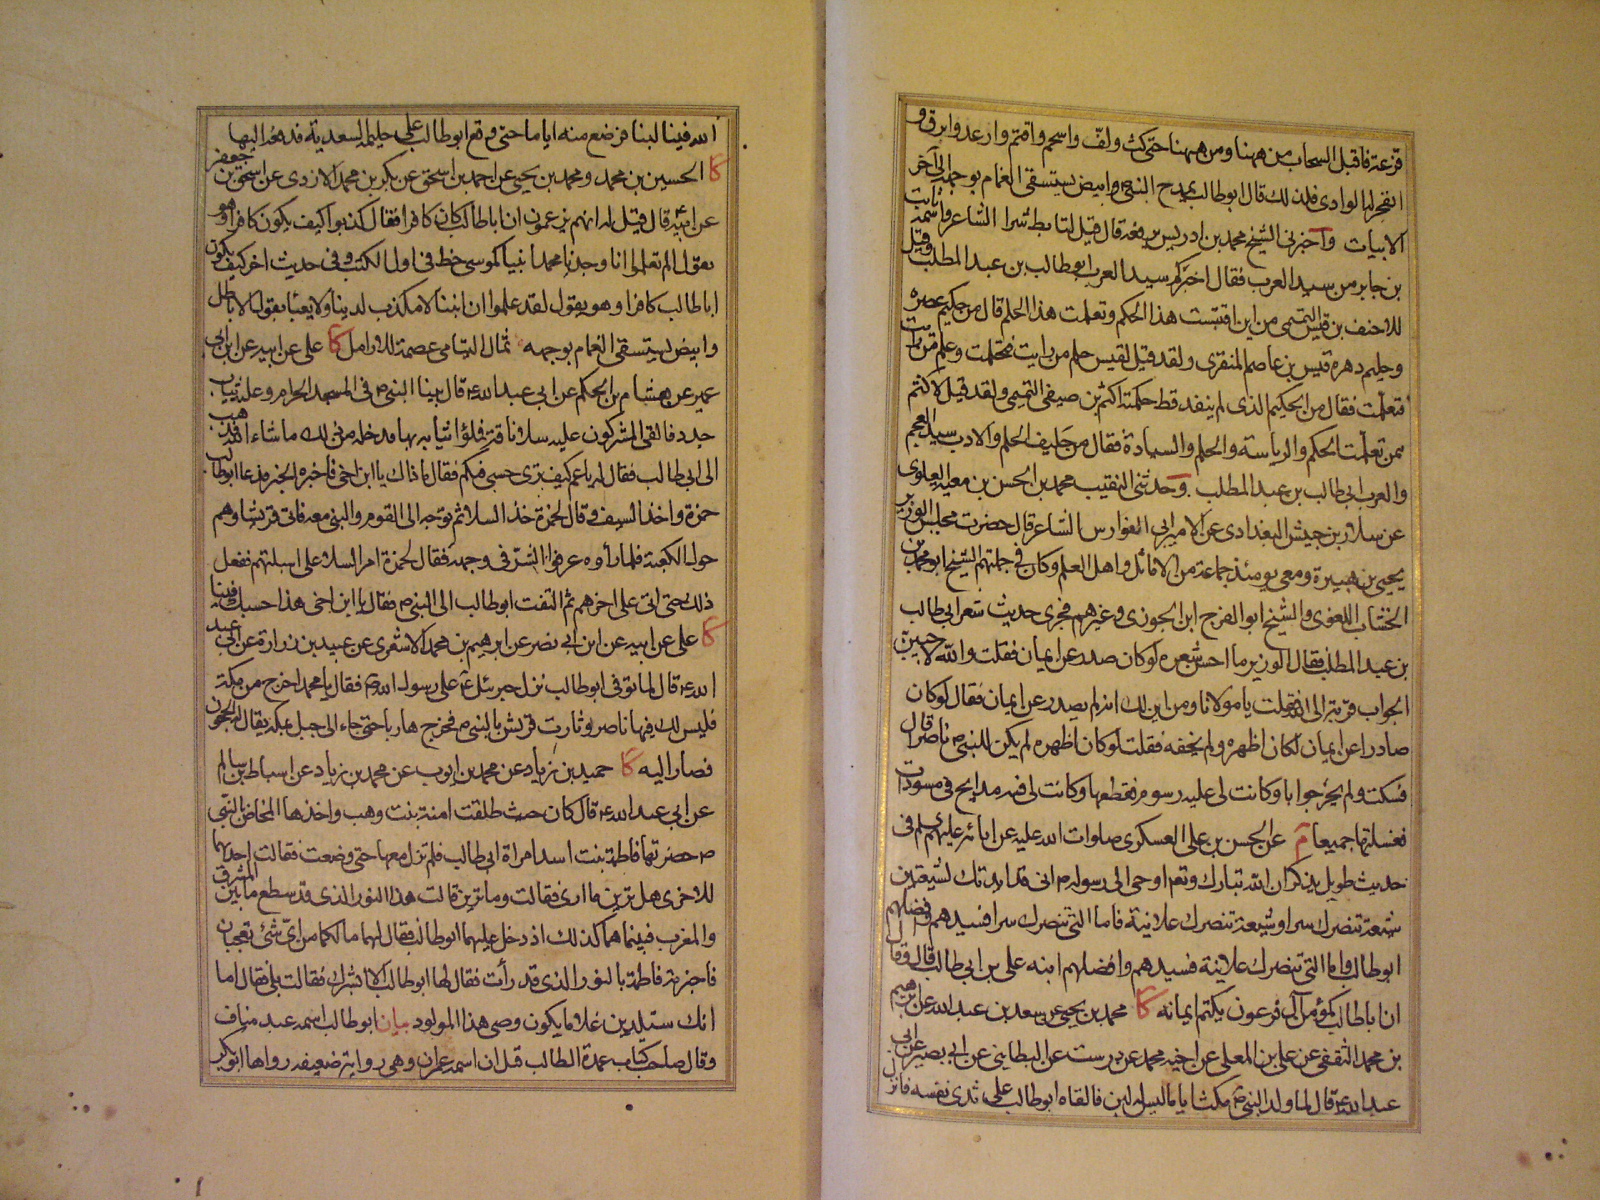 قزعة فاقبل السحاب من ههنا ومن ههنا حتى كث ولفّ واسحم واقتم وارعد وابرق و
انفجر له الوادى فلذلك قال ابو طالب يمدح النبى وابيض يستسقى الغمام بوجهه الى آخر
الابيات وأخبرنى الشيخ محمد بن ادريس يرفعه قال قيل لتأبط شرا الشاعر واسمه ثابت
بن جابر من سيد العرب فقال اخبركم سيد العرب ابو طالب بن عبد المطلب وقيل
للاحنف بن قيس التميمى من اين اقتبست هذا الحكم وتعلمت هذا الحلم قال من حكيم عصره
وحليم دهره قيس بن عاصم المنقرى ولقد قيل لقيس حلم من رايت فتحلمت وعلم من رايت
فتعلمت فقال من الحكيم الذى لم ينفد قط حكمته اكثم بن صيفى التميمى ولقد قيل لاكثم
ممن تعلمت الحكم والرياسة والحلم والسيادة فقال من حليف الحلم والادب سيد العجم
والعرب ابى طالب بن عبد المطلب وحدثنى النقيب محمد بن الحسن بن معية العلوى
عن سلار بن حبيش البغدادى عن الامير ابى الفوارس الشاعر قال حضرت مجلس الوزير
يحيى بن هبيرة ومعى يومئذ جماعة من الاماثل واهل العلم وكان فى جملتهم الشيخ ابو محمد بن
الخشاب اللغوى والشيخ ابو الفرج ابن الجوزى وغيرهم فجرى حديث شعر ابى طالب
بن عبد المطلب فقال الوزير ما احسن شعره لو كان صدر عن ايمان فقلت والله لاجيبن
الجواب قربة الى الله فقلت يا مولانا ومن اين لك انه لم يصدر عن ايمان فقال لو كان
صادرا عن ايمان لكان اظهره ولم يخفه فقلت لو كان اظهره لم يكن للنبى ص ناصر قال
فسكت ولم يحر جوابا وكانت لى عليه رسوم فقطعها وكانت لى فيه مدايح فى مسودات
فغسلتها جميعا م عن الحسن بن على العسكرى صلوات الله عليه عن ابائه عليهم السلم فى
حديث طويل يذكر ان الله تبارك وتعم اوحى الى رسوله ص انى قد ايدتك لشيعتين
شيعة تنصرك سرا وشيعة تنصرك علانية فاما التى تنصرك سرا فسيدهم وافضلهم
ابو طالب واما التى تنصرك علانية فسيدهم وافضلهم ابنه على بن ابى طالب قال وقال
ان ابا طالب كمؤمن آل فرعون يكتم ايمانه كا محمد بن يحيى عن سعد بن عبد الله عن ابرهيم
بن محمد الثقفى عن على بن المعلى عن اخيه محمد عن درست عن البطاينى عن ابى بصير عن ابى
عبد الله ع قال لما ولد النبى ص مكث اياما ليس له لبن فالقاه ابو طالب على ثدى نفسه فانزل
الله فيه لبنا فرضع منه اياما حتى وقع ابو طالب على حليمة السعدية فدفعه اليها
كا الحسين بن محمد ومحمد بن يحيى عن احمد بن اسحق عن بكر بن محمد الازدى عن اسحق بن جعفر
عن ابيه ع قال قيل له انهم يزعمون ان ابا طالب كان كافرا فقال كذبوا كيف يكون كافرا وهو
يقول الم تعلموا انا وجدنا محمدا نبيا كموسى خط فى اول الكتب وفى حديث اخر كيف يكون
ابا طالب كافرا وهو يقول لقد علموا ان ابننا لا مكذب لدينا ولا يعبا بقول الاباطل
وابيض يستسقى الغمام بوجهه ثمال اليتامى عصمة للارامل كا على عن ابيه عن ابن ابى
عمير عن هشام بن الحكم عن ابى عبد الله ع قال بينا النبى ص فى المسجد الحرام وعليه ثياب
جدد فالقى المشركون عليه سلا ناقة فملؤا ثيابه بها فدخله من ذلك ما شاء الله فذهب
الى ابى طالب فقال له يا عم كيف ترى حسبى فيكم فقال ما ذاك يا ابن اخى فاخبره الخبر فدعا ابو طالب
حمزة واخذ السيف وقال لحمزة خذ السلا ثم توجه الى القوم والنبى معه فاتى قريشا وهم
حول الكعبة فلما رأوه عرفوا الشر فى وجهه فقال لحمزة امر السلا على اسبلتهم ففعل
ذلك حتى اتى على اخرهم ثم التفت ابو طالب الى النبى ص فقال يا ابن اخى هذا حسبك فينا
كا على عن ابيه عن ابن ابى نصر عن ابرهيم بن محمد الاشعرى عن عبيد بن زرارة عن ابى عبد
الله ع قال لما توفى ابو طالب نزل جبرئيل ع على رسول الله ص فقال يا محمد اخرج من مكة
فليس لك فيها ناصر وثارت قريش بالنبى ص فخرج هاربا حتى جاء الى جبل بمكة يقال له الحجون
فصار اليه كا حميد بن زياد عن محمد بن ايوب عن محمد بن زياد عن اسباط بن سالم
عن ابى عبد الله ع قال كان حيث طلقت امنة بنت وهب واخذها المخاض بالنبى
ص حضرتها فاطمة بنت اسد امراة ابى طالب فلم تزل معها حتى وضعت فقالت احديهما
للاخرى هل ترين ما ارى فقالت وما ترين قالت هذا النور الذى قد سطع ما بين المشرق
والمغرب فبينما هما كذلك اذ دخل عليهما ابو طالب فقال لهما ما لكما من اى شئ تعجبان
فاخبرته فاطمة بالنور الذى قد رأت فقال لها ابو طالب الا ابشرك فقالت بلى فقال اما
انك ستلدين غلاما يكون وصى هذا المولود بيان ابو طالب اسمه عبد مناف
وقال صاحب كتاب عمدة الطالب قيل ان اسمه عمران وهى رواية ضعيفة رواها ابو بكر